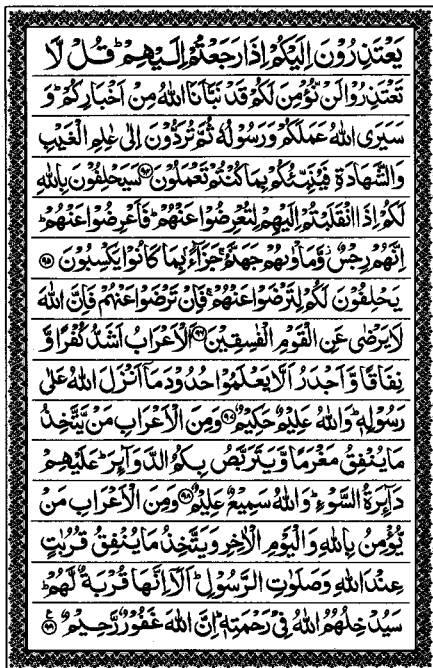 يَعْتَذِرُوْنَ اِلَيْكُمْ اِذَا رَجَعْتُمْ اِلَيْهِمْ ؕ قُلْ لَّا
تَعْتَذِرُوْا لَنْ نُّؤْمِنَ لَكُمْ قَدْ نَبَّاَنَا اللّٰهُ مِنْ اَخْبَارِكُمْ ؕ وَ
سَيَرَى اللّٰهُ عَمَلَكُمْ وَرَسُوْلُهٗ ثُمَّ تُرَدُّوْنَ اِلٰى عٰلِمِ الْغَيْبِ
وَالشَّهَادَةِ فَيُنَبِّئُكُمْ بِمَا كُنْتُمْ تَعْمَلُوْنَ ﴿۹۴﴾ سَيَحْلِفُوْنَ بِاللّٰهِ
لَكُمْ اِذَا انْقَلَبْتُمْ اِلَيْهِمْ لِتُعْرِضُوْا عَنْهُمْ ؕ فَاَعْرِضُوْا عَنْهُمْ ؕ
اِنَّهُمْ رِجْسٌ ؗ وَّمَاْوٰىهُمْ جَهَنَّمُ جَزَآءًۢ بِمَا كَانُوْا يَكْسِبُوْنَ ﴿۹۵﴾
يَحْلِفُوْنَ لَكُمْ لِتَرْضَوْا عَنْهُمْ ۚ فَاِنْ تَرْضَوْا عَنْهُمْ فَاِنَّ اللّٰهَ
لَا يَرْضٰى عَنِ الْقَوْمِ الْفٰسِقِيْنَ ﴿۹۶﴾ اَلْاَعْرَابُ اَشَدُّ كُفْرًا وَّ
نِفَاقًا وَّاَجْدَرُ اَلَّا يَعْلَمُوْا حُدُوْدَ مَاۤ اَنْزَلَ اللّٰهُ عَلٰى
رَسُوْلِهٖ ؕ وَاللّٰهُ عَلِيْمٌ حَكِيْمٌ ﴿۹۷﴾ وَمِنَ الْاَعْرَابِ مَنْ يَّتَّخِذُ
مَا يُنْفِقُ مَغْرَمًا وَّيَتَرَبَّصُ بِكُمُ الدَّوَآئِرَ ؕ عَلَيْهِمْ
دَآئِرَةُ السَّوْءِ ؕ وَاللّٰهُ سَمِيْعٌ عَلِيْمٌ ﴿۹۸﴾ وَمِنَ الْاَعْرَابِ مَنْ
يُّؤْمِنُ بِاللّٰهِ وَالْيَوْمِ الْاٰخِرِ وَيَتَّخِذُ مَا يُنْفِقُ قُرُبٰتٍ
عِنْدَ اللّٰهِ وَصَلَوٰتِ الرَّسُوْلِ ؕ اَلَاۤ اِنَّهَا قُرْبَةٌ لَّهُمْ ؕ
سَيُدْخِلُهُمُ اللّٰهُ فِيْ رَحْمَتِهٖ ؕ اِنَّ اللّٰهَ غَفُوْرٌ رَّحِيْمٌ ﴿۹۹﴾